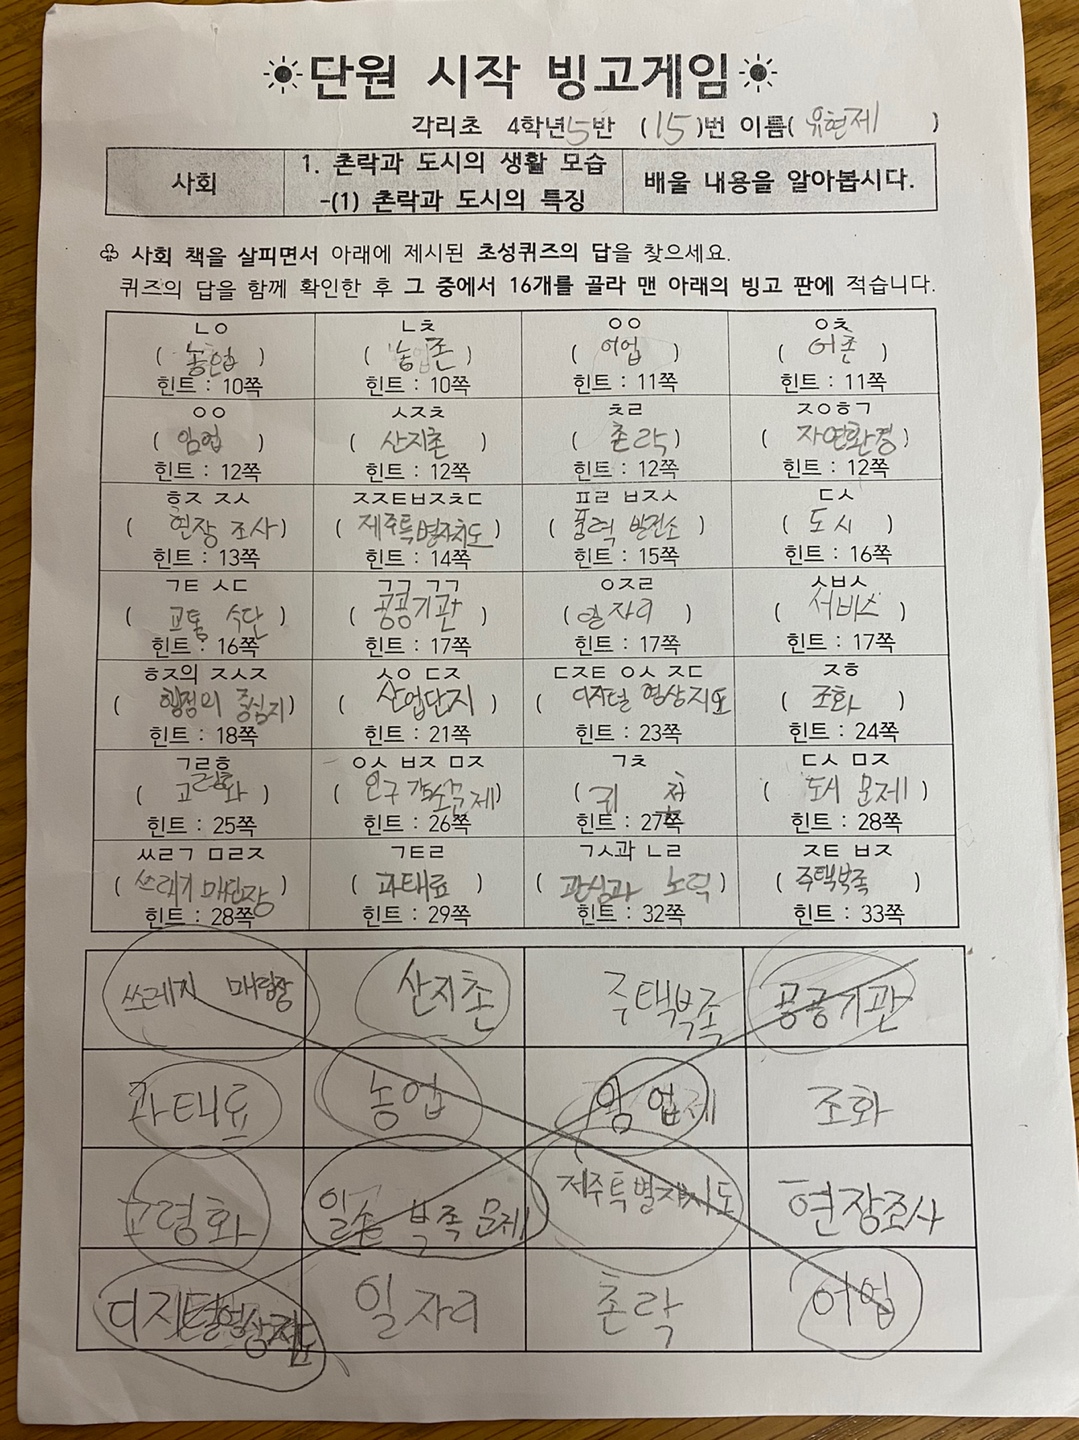 ☀단원 시작 빙고게임☀
각리초 4학년 5반 (15)번 이름(유현제)
사회
1. 촌락과 도시의 생활 모습
-(1) 촌락과 도시의 특징
배울 내용을 알아봅시다.
♧ 사회 책을 살피면서 아래에 제시된 초성퀴즈의 답을 찾으세요.
퀴즈의 답을 함께 확인한 후 그 중에서 16개를 골라 맨 아래의 빙고 판에 적습니다.
ㄴㅇ ㄴㅊ ㅇㅇ ㅇㅊ
(농업) (농촌) (어업) (어촌)
힌트 : 10쪽 힌트 : 10쪽 힌트 : 11쪽 힌트 : 11쪽
ㅇㅇ ㅅㅈㅊ ㅊㄹ ㅈㅇㅎㄱ
(임업) (산지촌) (촌락) (자연환경)
힌트 : 12쪽 힌트 : 12쪽 힌트 : 12쪽 힌트 : 12쪽
ㅎㅈ ㅈㅅ ㅈㅈㅌㅂㅈㅊㄷ ㅍㄹ ㅂㅈㅅ ㄷㅅ
(현장 조사) (제주특별자치도) (풍력 발전소) (도시)
힌트 : 13쪽 힌트 : 14쪽 힌트 : 15쪽 힌트 : 16쪽
ㄱㅌ ㅅㄷ ㄱㄱ ㄱㄱ ㅇㅈㄹ ㅅㅂㅅ
(교통 수단) (공공기관) (일자리) (서비스)
힌트 : 16쪽 힌트 : 17쪽 힌트 : 17쪽 힌트 : 17쪽
ㅎㅈ의 ㅈㅅㅈ ㅅㅇ ㄷㅈ ㄷㅈㅌ ㅇㅅ ㅈㄷ ㅈㅎ
(행정의 중심지) (산업단지) (디지털 영상지도) (조화)
힌트 : 18쪽 힌트 : 21쪽 힌트 : 23쪽 힌트 : 24쪽
ㄱㄹㅎ ㅇㅅ ㅂㅈ ㅁㅈ ㄱㅊ ㄷㅅ ㅁㅈ
(고령화) (인구 문제) (귀촌) (도시 문제)
힌트 : 25쪽 힌트 : 26쪽 힌트 : 27쪽 힌트 : 28쪽
ㅆㄹㄱ ㅁㄹㅈ ㄱㅌㄹ ㄱㅅ과 ㄴㄹ ㅈㅌ ㅂㅈ
(쓰레기 매립장) (과태료) (관심과 노력) (주택부족)
힌트 : 28쪽 힌트 : 29쪽 힌트 : 32쪽 힌트 : 33쪽
쓰레기 매립장 산지촌 주택부족 공공기관
과태료 농업 임업 조화
고령화 일손 부족 문제 제주특별자치도 현장조사
디지털영상지도 일자리 촌락 어업